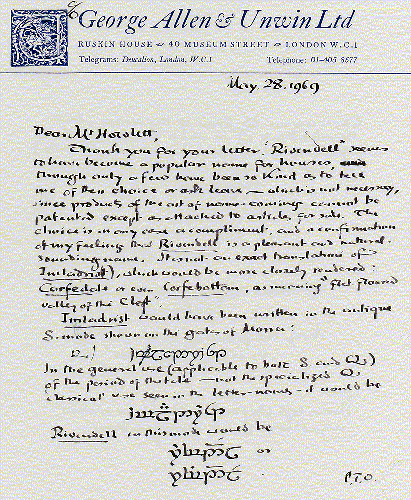 c/o George Allen & Unwin Ltd
RUSKIN HOUSE 40 MUSEUM STREET LONDON W.C.1
Telegrams: Deucalion, London, W.C.1 Telephone: 01-405 8577
May 28. 1969
Dear Mr Howlett,
Thank you for your letter. "Rivendell" seems
to have become a popular name for houses,
though only a few have been so kind as to tell
me of their choice or ask leave — which is not necessary,
since products of the art of name-coining cannot be
patented except as attached to articles for sale. The
choice is in any case a compliment, and a confirmation
of my feeling that Rivendell is a pleasant and natural-
sounding name. It is not an exact translation of
Imladrist), which would be more closely rendered:
Corfedale or even Corfebottom, as meaning "flat floored
valley of the Cleft".
Imladrist would have been written in the antique
S. mode shown on the gates of Moria:
In the general use (applicable to both S. and Q.)
of the period of the tale — not the specialized Q.
'classical' use seen in the letter-names — it would be
Rivendell in this mode would be
or
P.T.O.